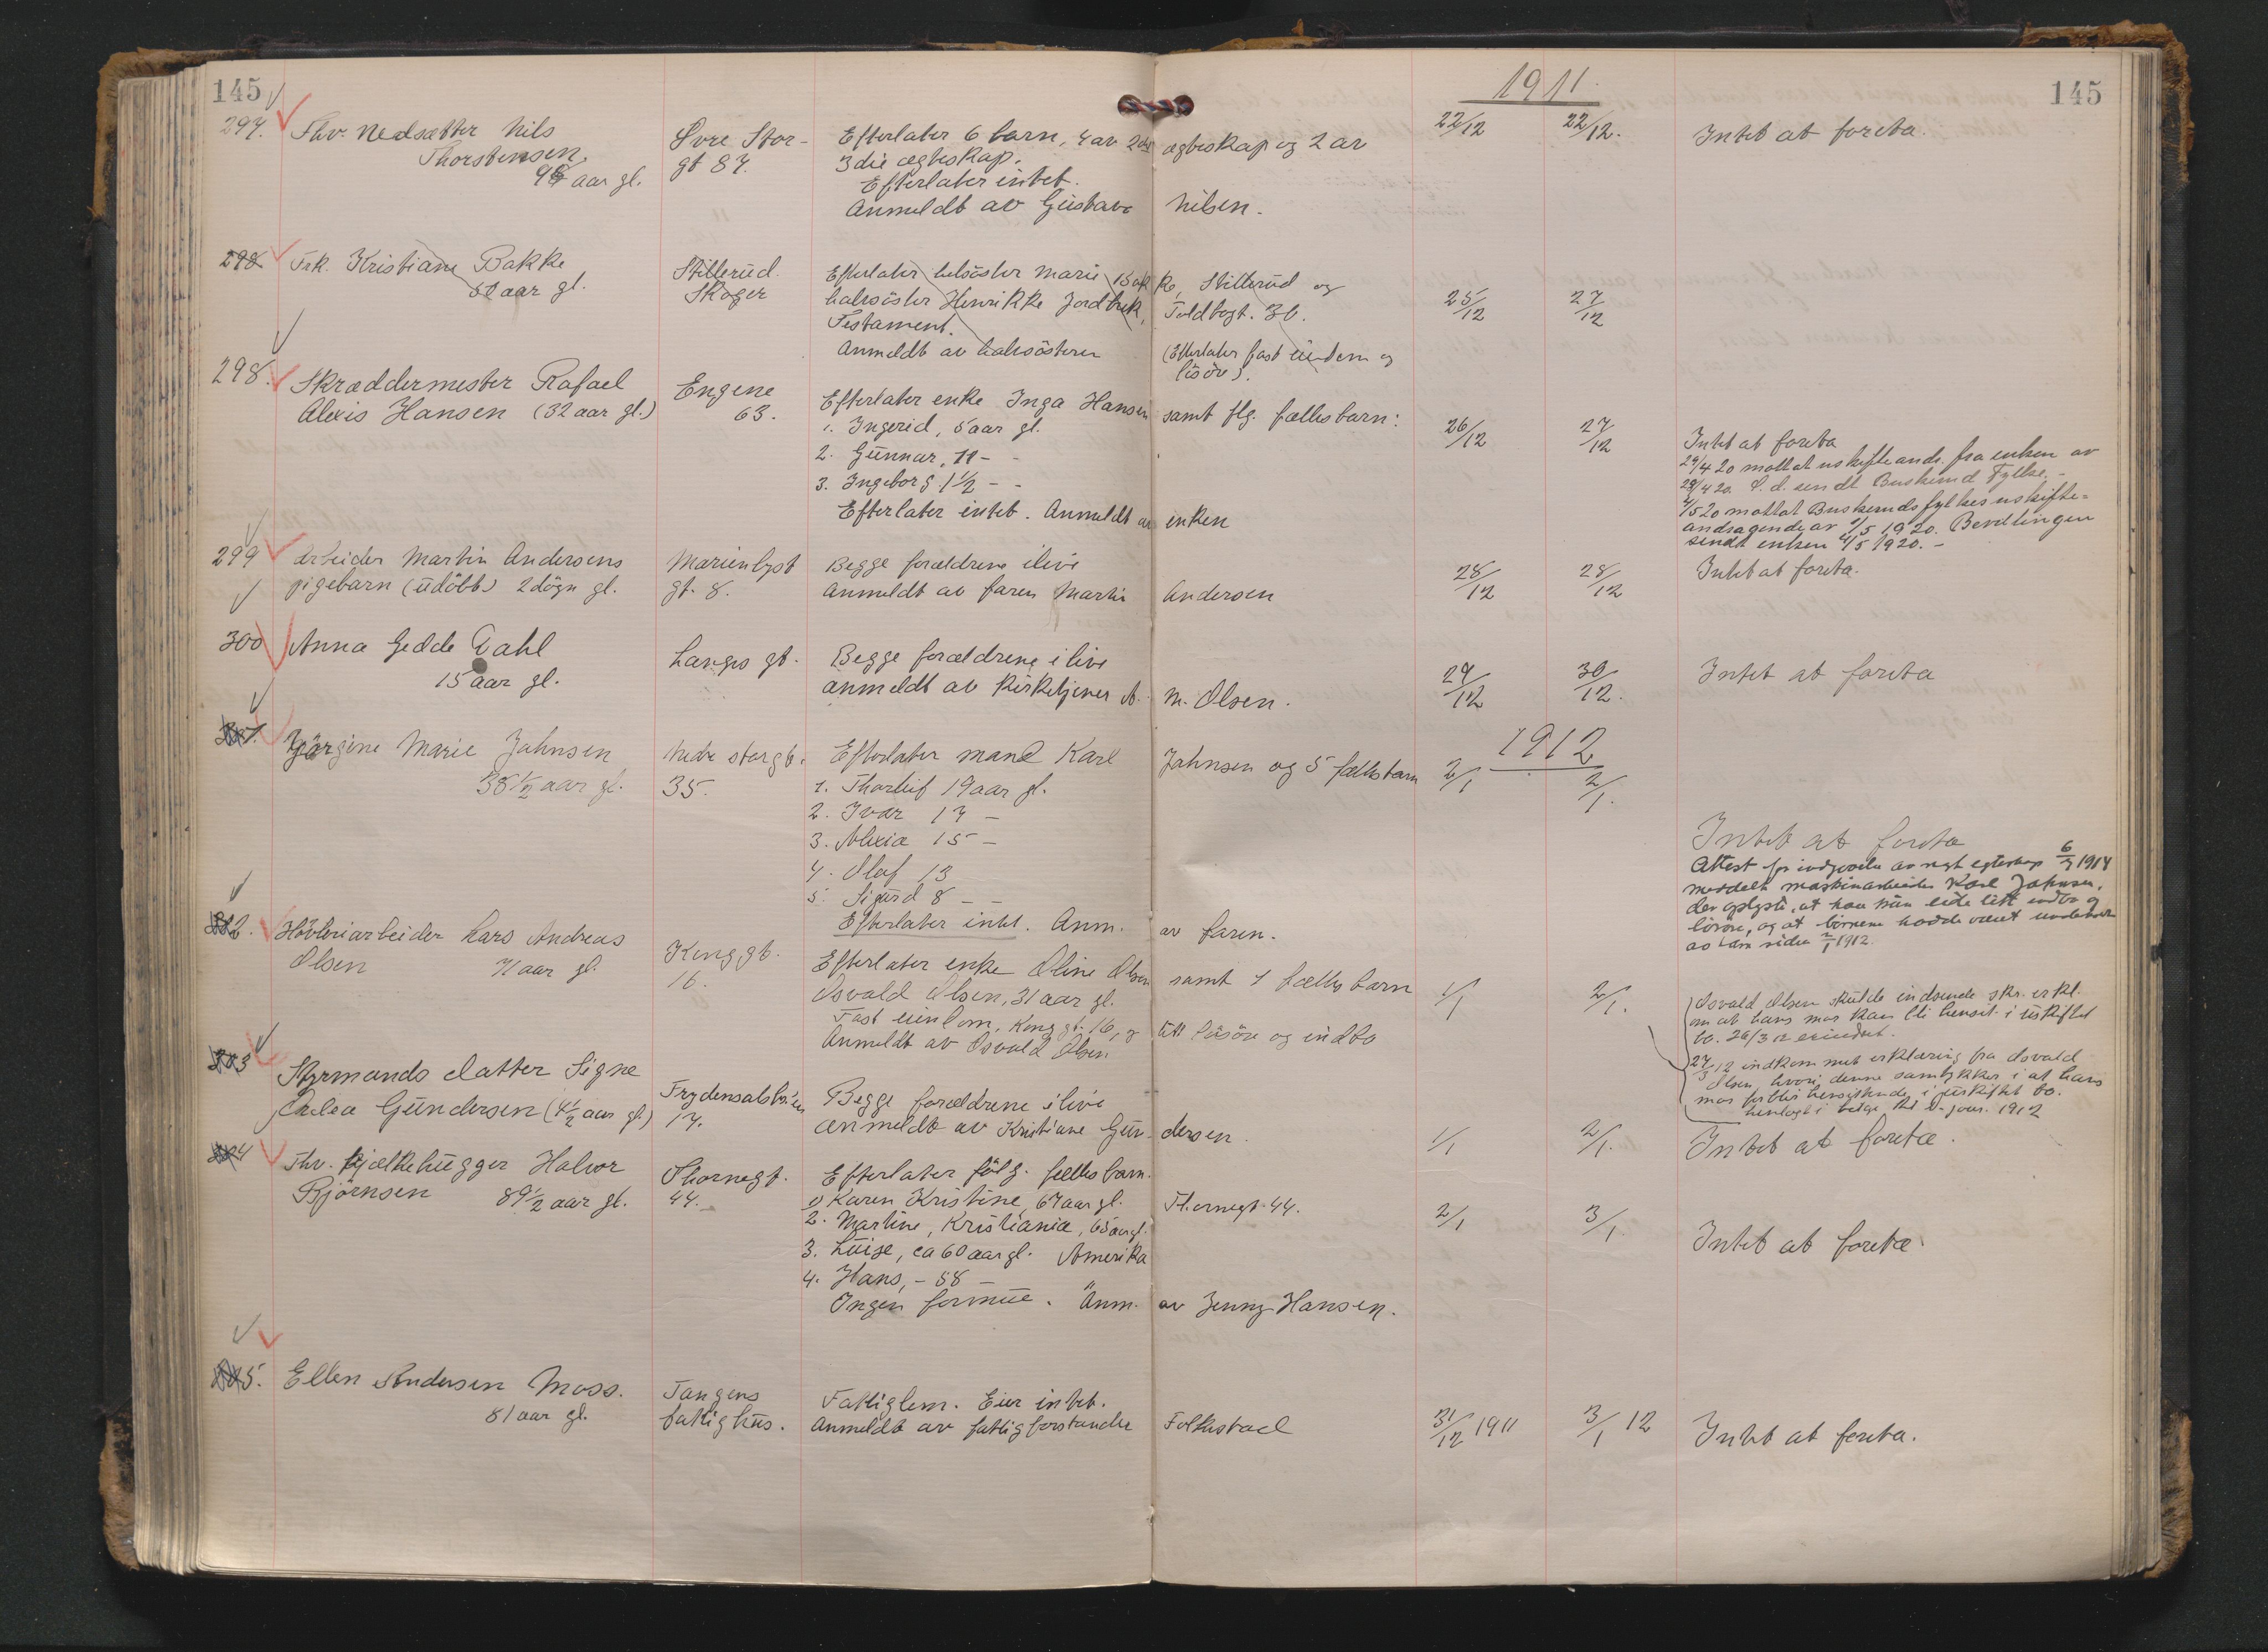 145
1911.
145
297. Fhv. Nedsætter Nils
Thorstensen,
aar gl.
Øvre Stor-
gt 87.
Efterlater 6 barn, 4 av 2det egteskap og 2 av
3die egteskap.
Efterlater intet.
Anmeldt av Gustava Nilsen.
22/12 22/12.
Intet at foreta.
298 Frk. Kristiane Bakke
50 aar gl.
Stillerud.
Skoger
Efterlater helsöster Marie Bakke, Stillerud og
halvsöster Henrikke Jordbrek, Toldbogt. 36.
Testament.
Anmeldt av halvsösteren (Efterlater fast eiendom og
lösöre).
25/12 27/12
298. Skræddermester Rafael
Alexis Hansen (32 aar gl.)
Engene
63.
Efterlater enke Inga Hansen samt flg. fællesbarn:
1. Ingerid, 5 aar gl.
2. Gunnar, 11 - -
3. Ingeborg 1 1/2 - -
Efterlater intet. Anmeldt av enken
26/12 27/12
Intet at foreta
29/4 20 mottat uskifteandr. fra enken av
28/4 20. S. d. sendt Buskerud Fylke.-
4/5 20 mottat Buskeruds fylkes uskifte=
andragende av 1/5 1920. Bevillingen
sendt enken 4/5 1920.-
299 Arbeider Martin Andersens
pigebarn (udöbt) 2 dögn gl.
Marienlyst
gt. 8.
Begge forældrene ilive
Anmeldt av faren Martin Andersen
28/12 28/12
Intet at foreta.
300 Anna Gedde Dahl
15 aar gl.
Langes gt.
Begge forældrene i live
anmeldt av Kirketjener A. M. Olsen.
29/12 30/12.
Intet at foreta
1912
1. Jörgine Marie Jahnsen
38 1/2 aar gl.
Nedre Storgt.
35.
Efterlater mand Karl Jahnsen og 5 fællesbarn
1. Thorleif 19 aar gl.
2. Ivar 17 -
3. Alexia 15 -
4. Olaf 13
5. Sigurd 8 - -
Efterlater intet. Anm. av faren.
2/1 2/1.
Intet at foreta
Attest for indgaaelse av nyt egteskap 6/7 1914
meddelt maskinarbeider Karl Jahnsen,
der oplyste, at han kun eide litt indbo og
lösöre, og at börnene hadde været underholdt
av ham siden 2/1 1912.
2. Hövleriarbeider Lars Andreas
Olsen 71 aar gl.
Kong gt.
16.
Efterlater enke Oline Olsen samt 1 fællesbarn
Osvald Olsen, 31 aar gl.
Fast eiendom, Kong gt. 16, og litt lösöre og indbo
Anmeldt av Osvald Olsen
1/1 2/1.
Osvald Olsen skulde indsende skr. erkl.
om at hans mor kan bli hensit. i uskiftet
bo. 26/3 12 erindret.
27/3 12 indkom med erklæring fra Osvald
Olsen hvori denne samtykker i at hans
mor forblir hensittende i uskiftet bo.
henlagt i bilge til d- jour. 1912
3 Styrmands datter Signe
Thelea Gundersen (4 1/2 aar gl)
Frydensalsbr:en
17.
Begge forældrene ilive
anmeldt av Kristiane Gundersen.
1/1 2/1.
Intet at foreta.
4 Fhv. Bjælkehugger Halvor
Björnsen 89 1/2 aar gl.
Thornegt.
44.
Efterlater fölg. fællesbarn.
1) Karen Kristine, 67 aar gl. Thornegt. 44.
2. Martine, Kristiania, 65 aar gl.
3. Luise, ca 60 aar gl. Amerika
4. Hans, - 58 - "
Ingen formue. Anm. av Jenny Hansen.
2/1 3/1.
Intet at foreta.
5. Ellen Andersen Moss.
81 aar gl.
Tangens
fattighus.
Fattiglem. Eier intet.
Anmeldt av fattigforstander Folkestad
31/12 1911 3/1 12
Intet at foreta.